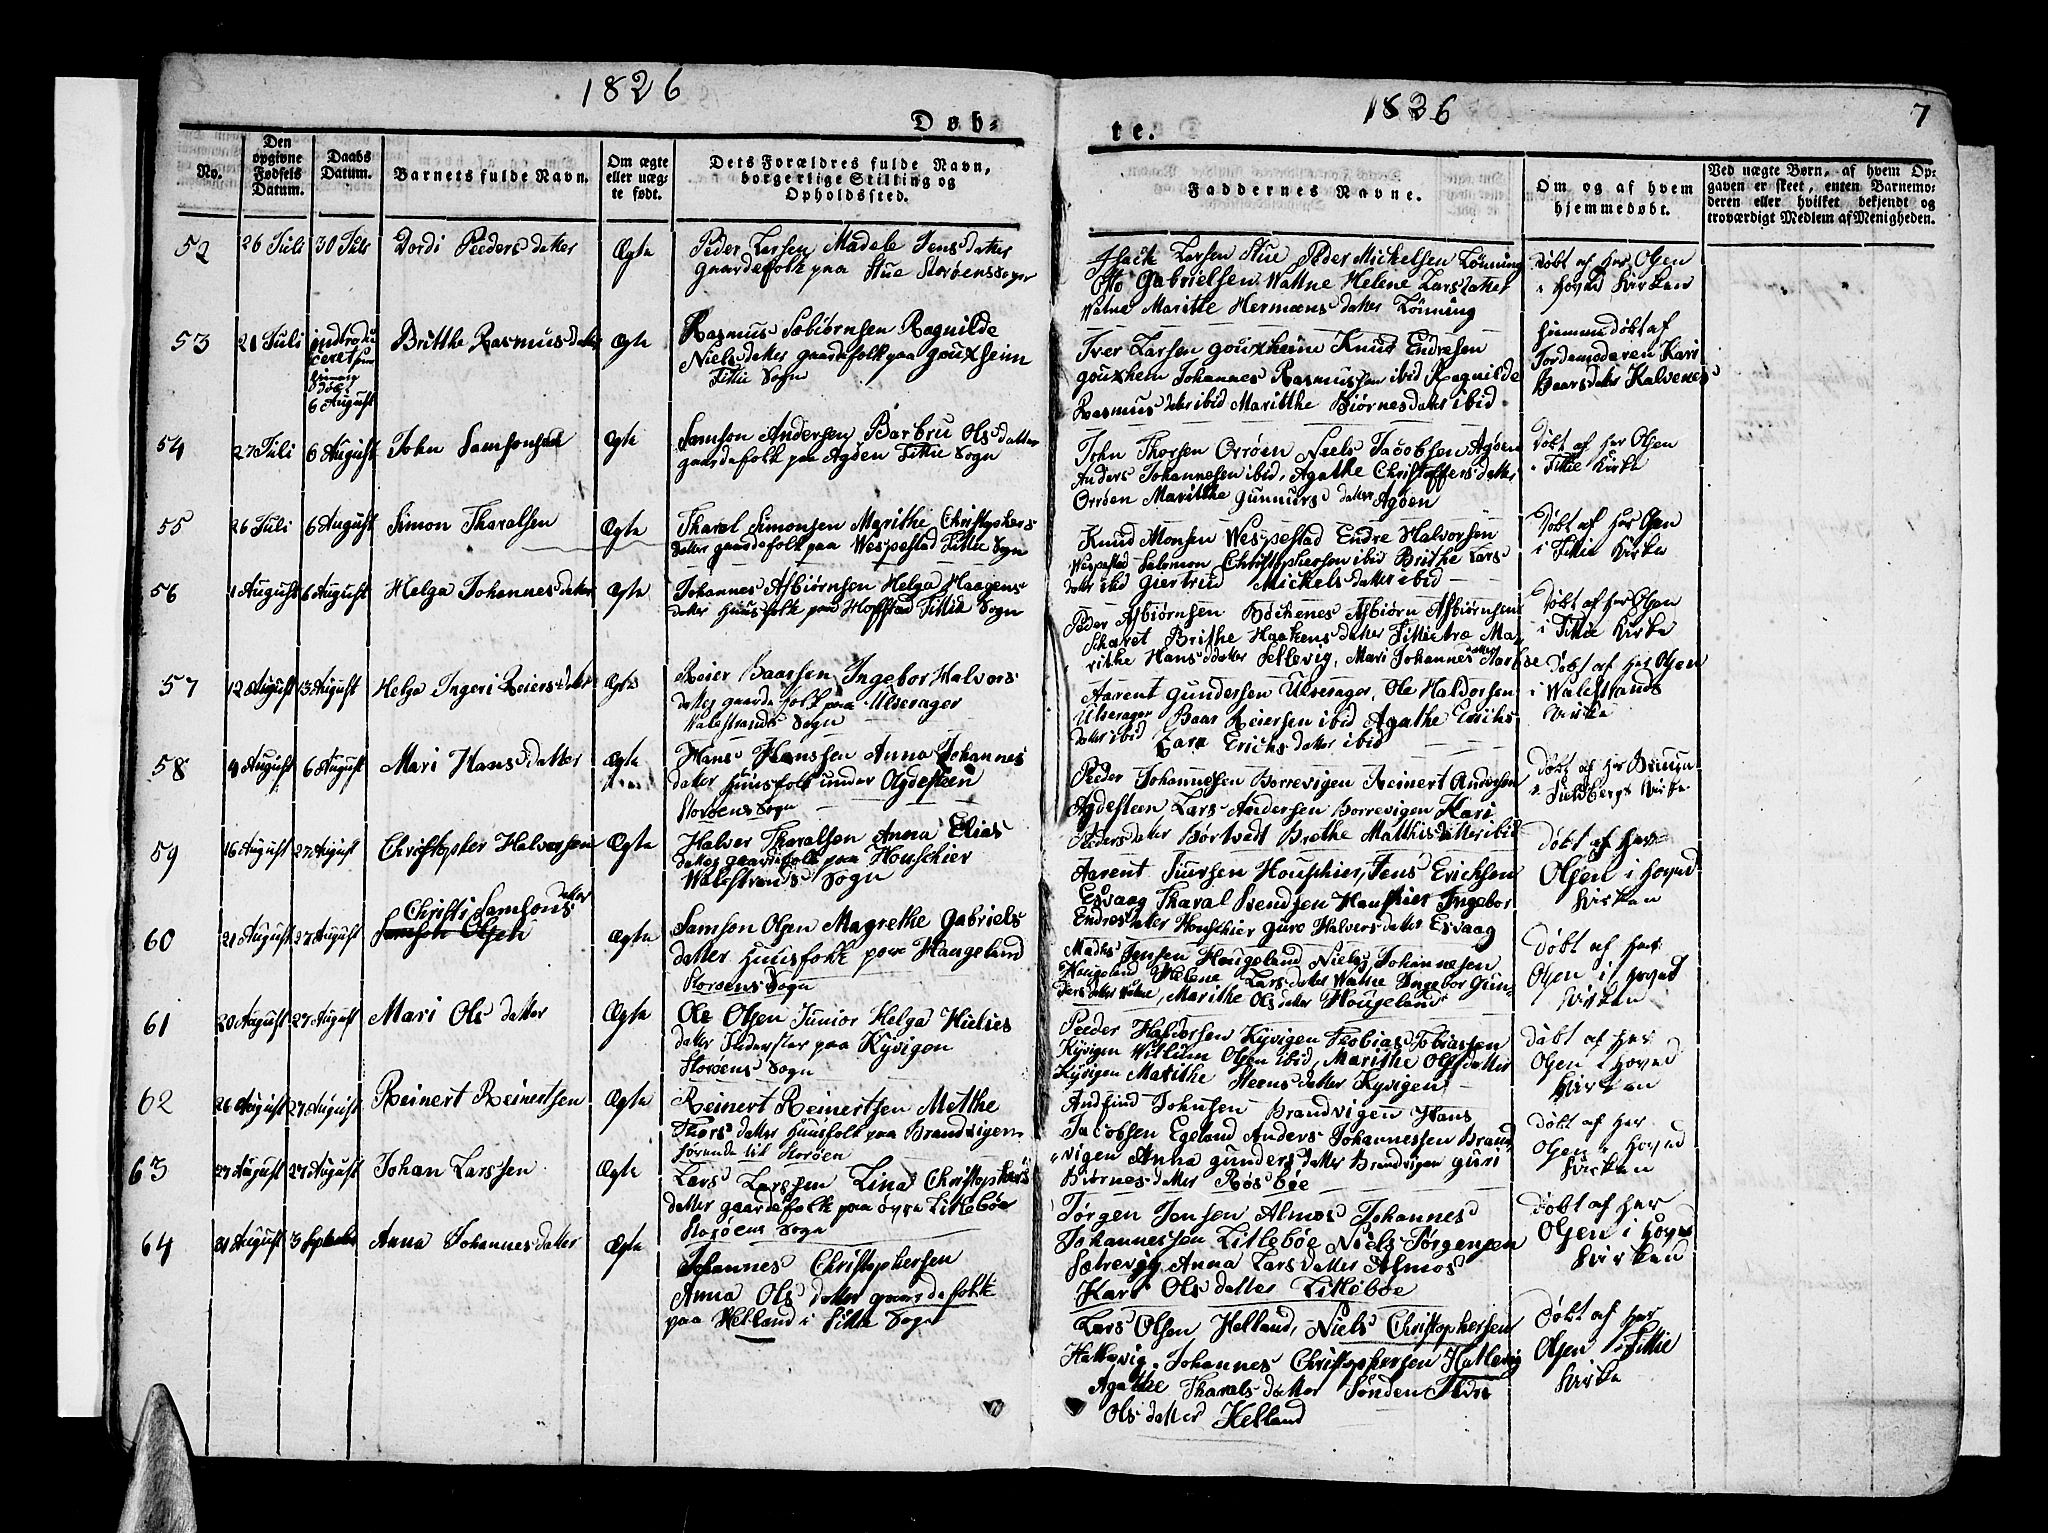 1826
1826
7
Døb-
te.
No.
Den
opgivne
Fødsels
Datum.
Daabs
Datum.
Barnets fulde Navn.
Om ægte
eller uæg-
te født.
Dets Forældres fulde Navn,
borgerlige Stilling og
Opholdssted.
Faddernes Navne.
Om og af hvem
hjemmedøbt.
Ved uægte Børn, af hvem Op-
gaven er skeet, enten Barnemo-
deren eller hvilket bekjendt og
troværdigt Medlem af Menigheden.
52
26 Juli
30 Juli
Dordi Peeders datter
Ægte
Peder Larsen Madele Jens datter
gaardefolk paa Stue Storøens Sogn
Isack Larsen Stue Peder Mickelsen Lønning
Ole Gabrielsen Watne Helene Lars datter
Watne Marithe Hermæns datter Lønning
Døbt af Her Olsen
i Hoved Kirken
53
21 Juli
introdu
ceret
hjemme
Døbt
6 August
Brithe Rasmus datter
Ægte
Rasmus Sæbiørnsen Ragnilde
Niels datter gaardefolk paa gouxheim
Fittie Sogn
Iver Larsen gouxheim Knud Endresen
gouxhem Johannes Rasmussen ibid Ragnilde
Rasmus datter ibid Maritthe Biørnes datter ibid
Hiemmedøbt af
Jordemoderen Kari
Baarsdatter Kalvenes
54
27 Juli
6 August
John Samsonsen
Ægte
Samson Andersen Barbru Ols datter
gaardefolk paa Agøen Fittie Sogn
John Thorsen Orrøen Niels Jacobsen Agøen
Anders Johannesen ibid, Agathe Christoffers datter
Orrøen Maritthe Gunnurs datter Agøen
Døbt af Her Olsen
i Fittie Kirke
55
26 Juli
6 August
Simon Tharalsen
Ægte
Tharal Simonsen Marithe Christophers
datter gaardefolk paa Wespestad Fittie Sogn
Knud Monsen Wespestad Endre Halvorsen
Wespestad Salomon Christophersen ibid Brithe Lars
datter ibid Giertrud Mickels datter ibid
Døbt af Her Olsen
i Fittie Kirke
56
1 August
6 August
Helga Johannes datter
Ægte
Johannes Asbiørnsen Helga Haagens
datter Huusfolk paa Hoffstad Fittie Sogn
Peder Asbiørnsen Bøckenes Asbiørn Asbiørnsen
Skaret Brithe Haakens datter Fittietræ Ma
rithe Hans datter Sellevig, Mari Johannes datter
Døbt af Her Olsen
i Fittie Kirke
57
12 August
13 August
Helga Ingeri Reiers datter
Ægte
Reier Baarsen Ingebor Halvors
datter gaardefolk paa Ulverager
Walestrands Sogn
Aarent Gundersen Ulverager, Ole Haldorsen
Ulverager Baar Reiersen ibid Agathe Erichs
datter ibid Zara Erichs datter ibid
Døbt af Her Olsen
i Walestrands
Kirke
58
August
6 August
Mari Hans datter
Ægte
Hans Hanssen Anna Johannes
datter Huusfolk under Agdesteen
Storøens Sogn
Peeder Johannessen Borrevigen Reinert Andersen
Agdesteen Lars Andersen Borrevigen Kari
Peders datter Børtvedt Brethe Matthis datter ibid
Døbt af Her
Kirke
59
16 August
27 August
Christopher Halvorsen
Ægte
Halver Tharalsen Anna Elias
datter gaardefolk paa Houschier
Walestrands Sogn
Aarent Siursen Houschier, Jens Erichsen
Esvaag Tharal Svendsen Houschier Ingebor
Endres datter Houschier Guro Halvors datter Esvaag
Døbt af Her
Olsen i Hoved
Kirken
60
21 August
27 August
Christi Samsons datter
Samson Olsen
Ægte
Samson Olsen Magrethe Gabriels
datter Huusfolk paa Haugeland
Storøens Sogn
Mads Jensen Hougeland Niels Johannesen
Hougeland Helene Lars datter Watne Ingebor Gun-
ders datter Watne, Marithe Ols datter Hougeland
Døbt af Her
Olsen i Hoved
Kirken
61
20 August
27 August
Mari Ols datter
Ægte
Ole Olsen Junior Helga Nielses
datter Inderster paa Kyvigen
Storøens Sogn
Peeder Haldorsen Kyvigen Tobias Tobiassen
Kyvigen Willum Olsen ibid, Marithe Ols datter
Kyvigen Marithe Steens datter Kyvigen
Døbt af Her
Olsen i Hoved
Kirken
62
26 August
27 August
Reinert Reinertsen
Ægte
Reinert Reinertsen Metthe
Thors datter Huusfolk paa Brandvigen
hørende til Storøen
Andfind Johnsen Brandvigen Hans
Jacobsen Egeland Anders Johannessen Brand
vigen Anna Gunders datter Brandvigen Guri
Biørnes datter Røsbøe
Døbt af Her
Olsen i Hoved
Kirken
63
27 August
27 August
Johan Larssen
Ægte
Lars Larssen Lina Christophers
datter gaardefolk paa øvre Litlebøe
Storøens Sogn
Jørgen Jonsen Almos Johannes
Johannessen Litlebøe Niels Jørgensen
Sætrevig Anna Lars datter Almos
Kari Ols datter Litlebøe
Døbt af Her
Olsen i Hoved
Kirken
64
31 August
3 September
Anna Johannes datter
Ægte
Johannes Christophersen
Anna Ols datter gaardefolk
paa Helland i Fittie Sogn
Lars Olsen Helland, Niels Christophersen
Hattevig, Johannes Christophersen Hattevig
Agathe Tharals datter Sønden
Ols datter Helland
Døbt af Her
Olsen i Fittie
Kirke